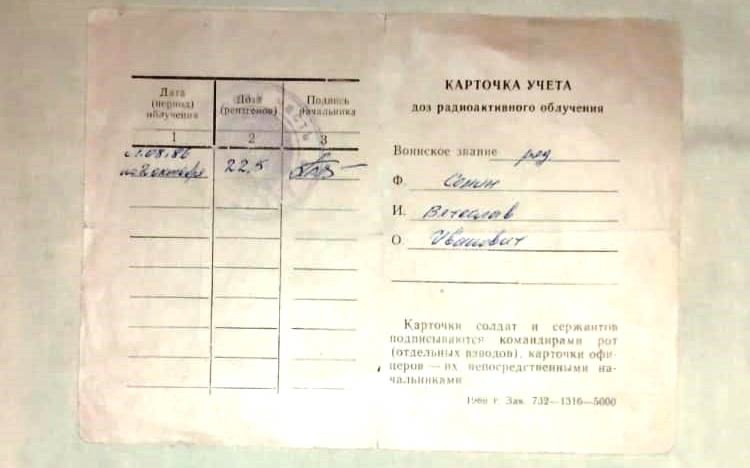 Дата
(период)
облучения
Доза
(рентгенов)
Подпись
начальника
1
2
3
с 1.08.86
по 2 октября
22,5
КАРТОЧКА УЧЕТА
доз радиоактивного облучения
Воинское звание ряд
Ф. Сонин
И. Вячеслав
О. Иванович
Карточки солдат и сержантов
подписываются командирами рот
(отдельных взводов), карточки офи-
церов — их непосредственными на-
чальниками
1966 г. Зак. 732—1316—5000